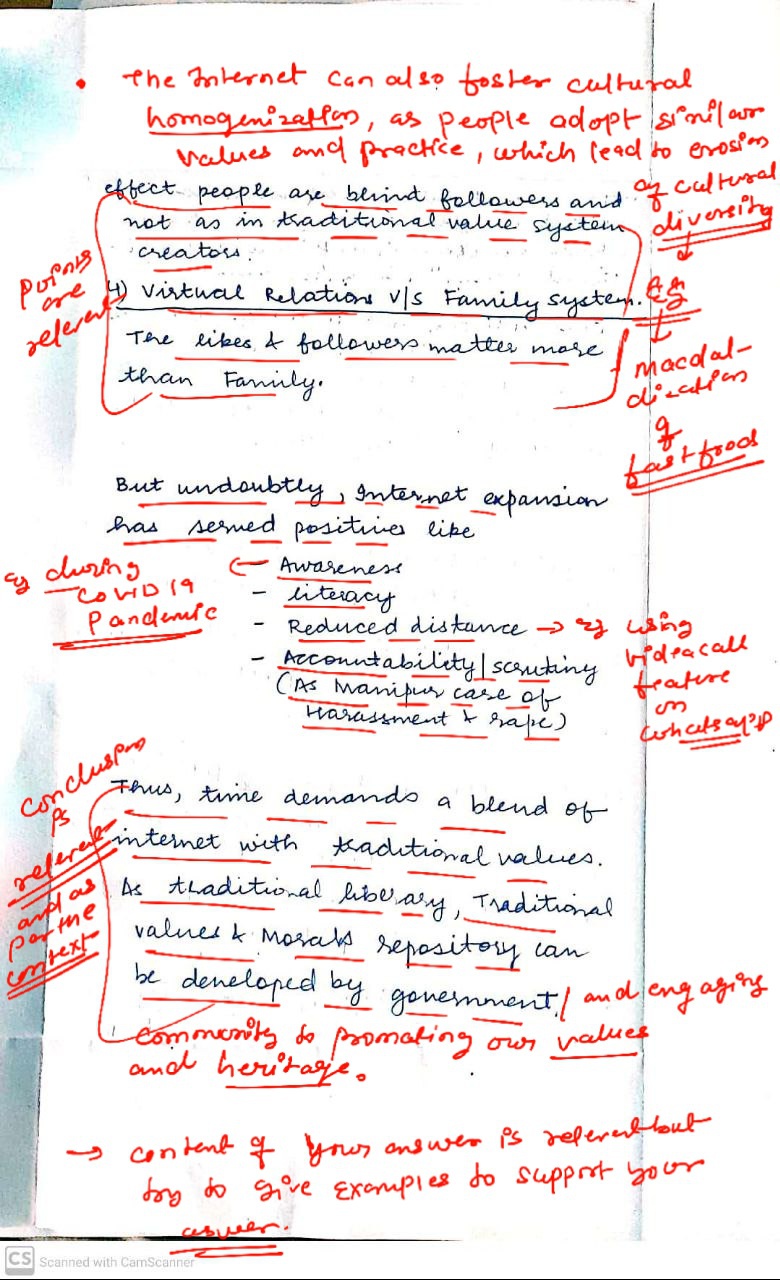 • The Internet can also foster cultural
homogenization, as people adopt similar
values and practice, which lead to erosion
of cultural
diversity
effect people are blind followers and
not as in traditional value system
creators.
Points
are
relevant
4) Virtual Relations V/s Family system.
Eg
The likes & followers matter more
than Family.
macdal-
dization
of
fast food
But undoubtly, Internet expansion
has served positives like
eg during
COVID 19
Pandemic
- Awareness
- literacy
- Reduced distance → eg using
videocall
feature
on
whatsapp
- Accountability/scrutiny
(As Manipur case of
Harassment & rape)
Conclusion
is
relevant
and as
per the
context
Thus, time demands a blend of
internet with traditional values.
As traditional liberary, Traditional
values & Morals repository can
be developed by government/ and engaging
community to promoting our values
and heritage.
→ content of your answer is relevent but
try to give examples to support your
aswer.
CS Scanned with CamScanner